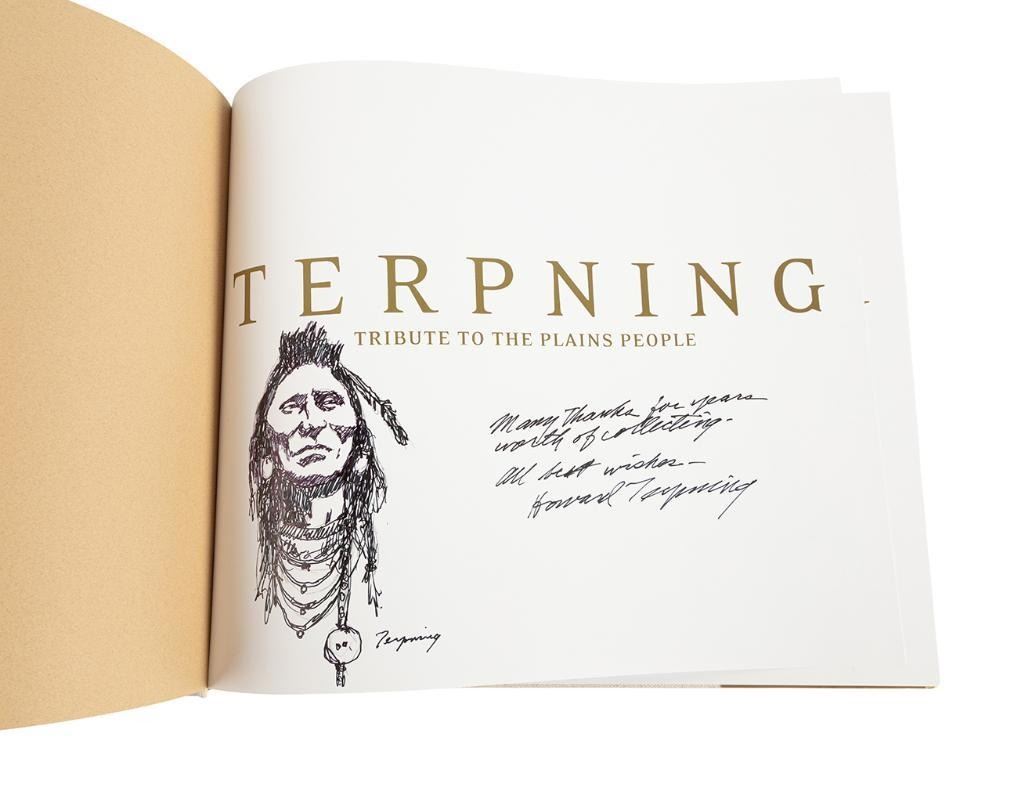 TERPNING
TRIBUTE TO THE PLAINS PEOPLE
Many Thanks for years
worth of collecting-
All best wishes-
Howard Terpning
Terpning